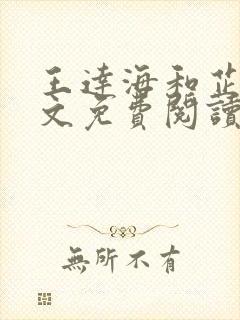 王達海和芷
文免費閱讀
無所不有